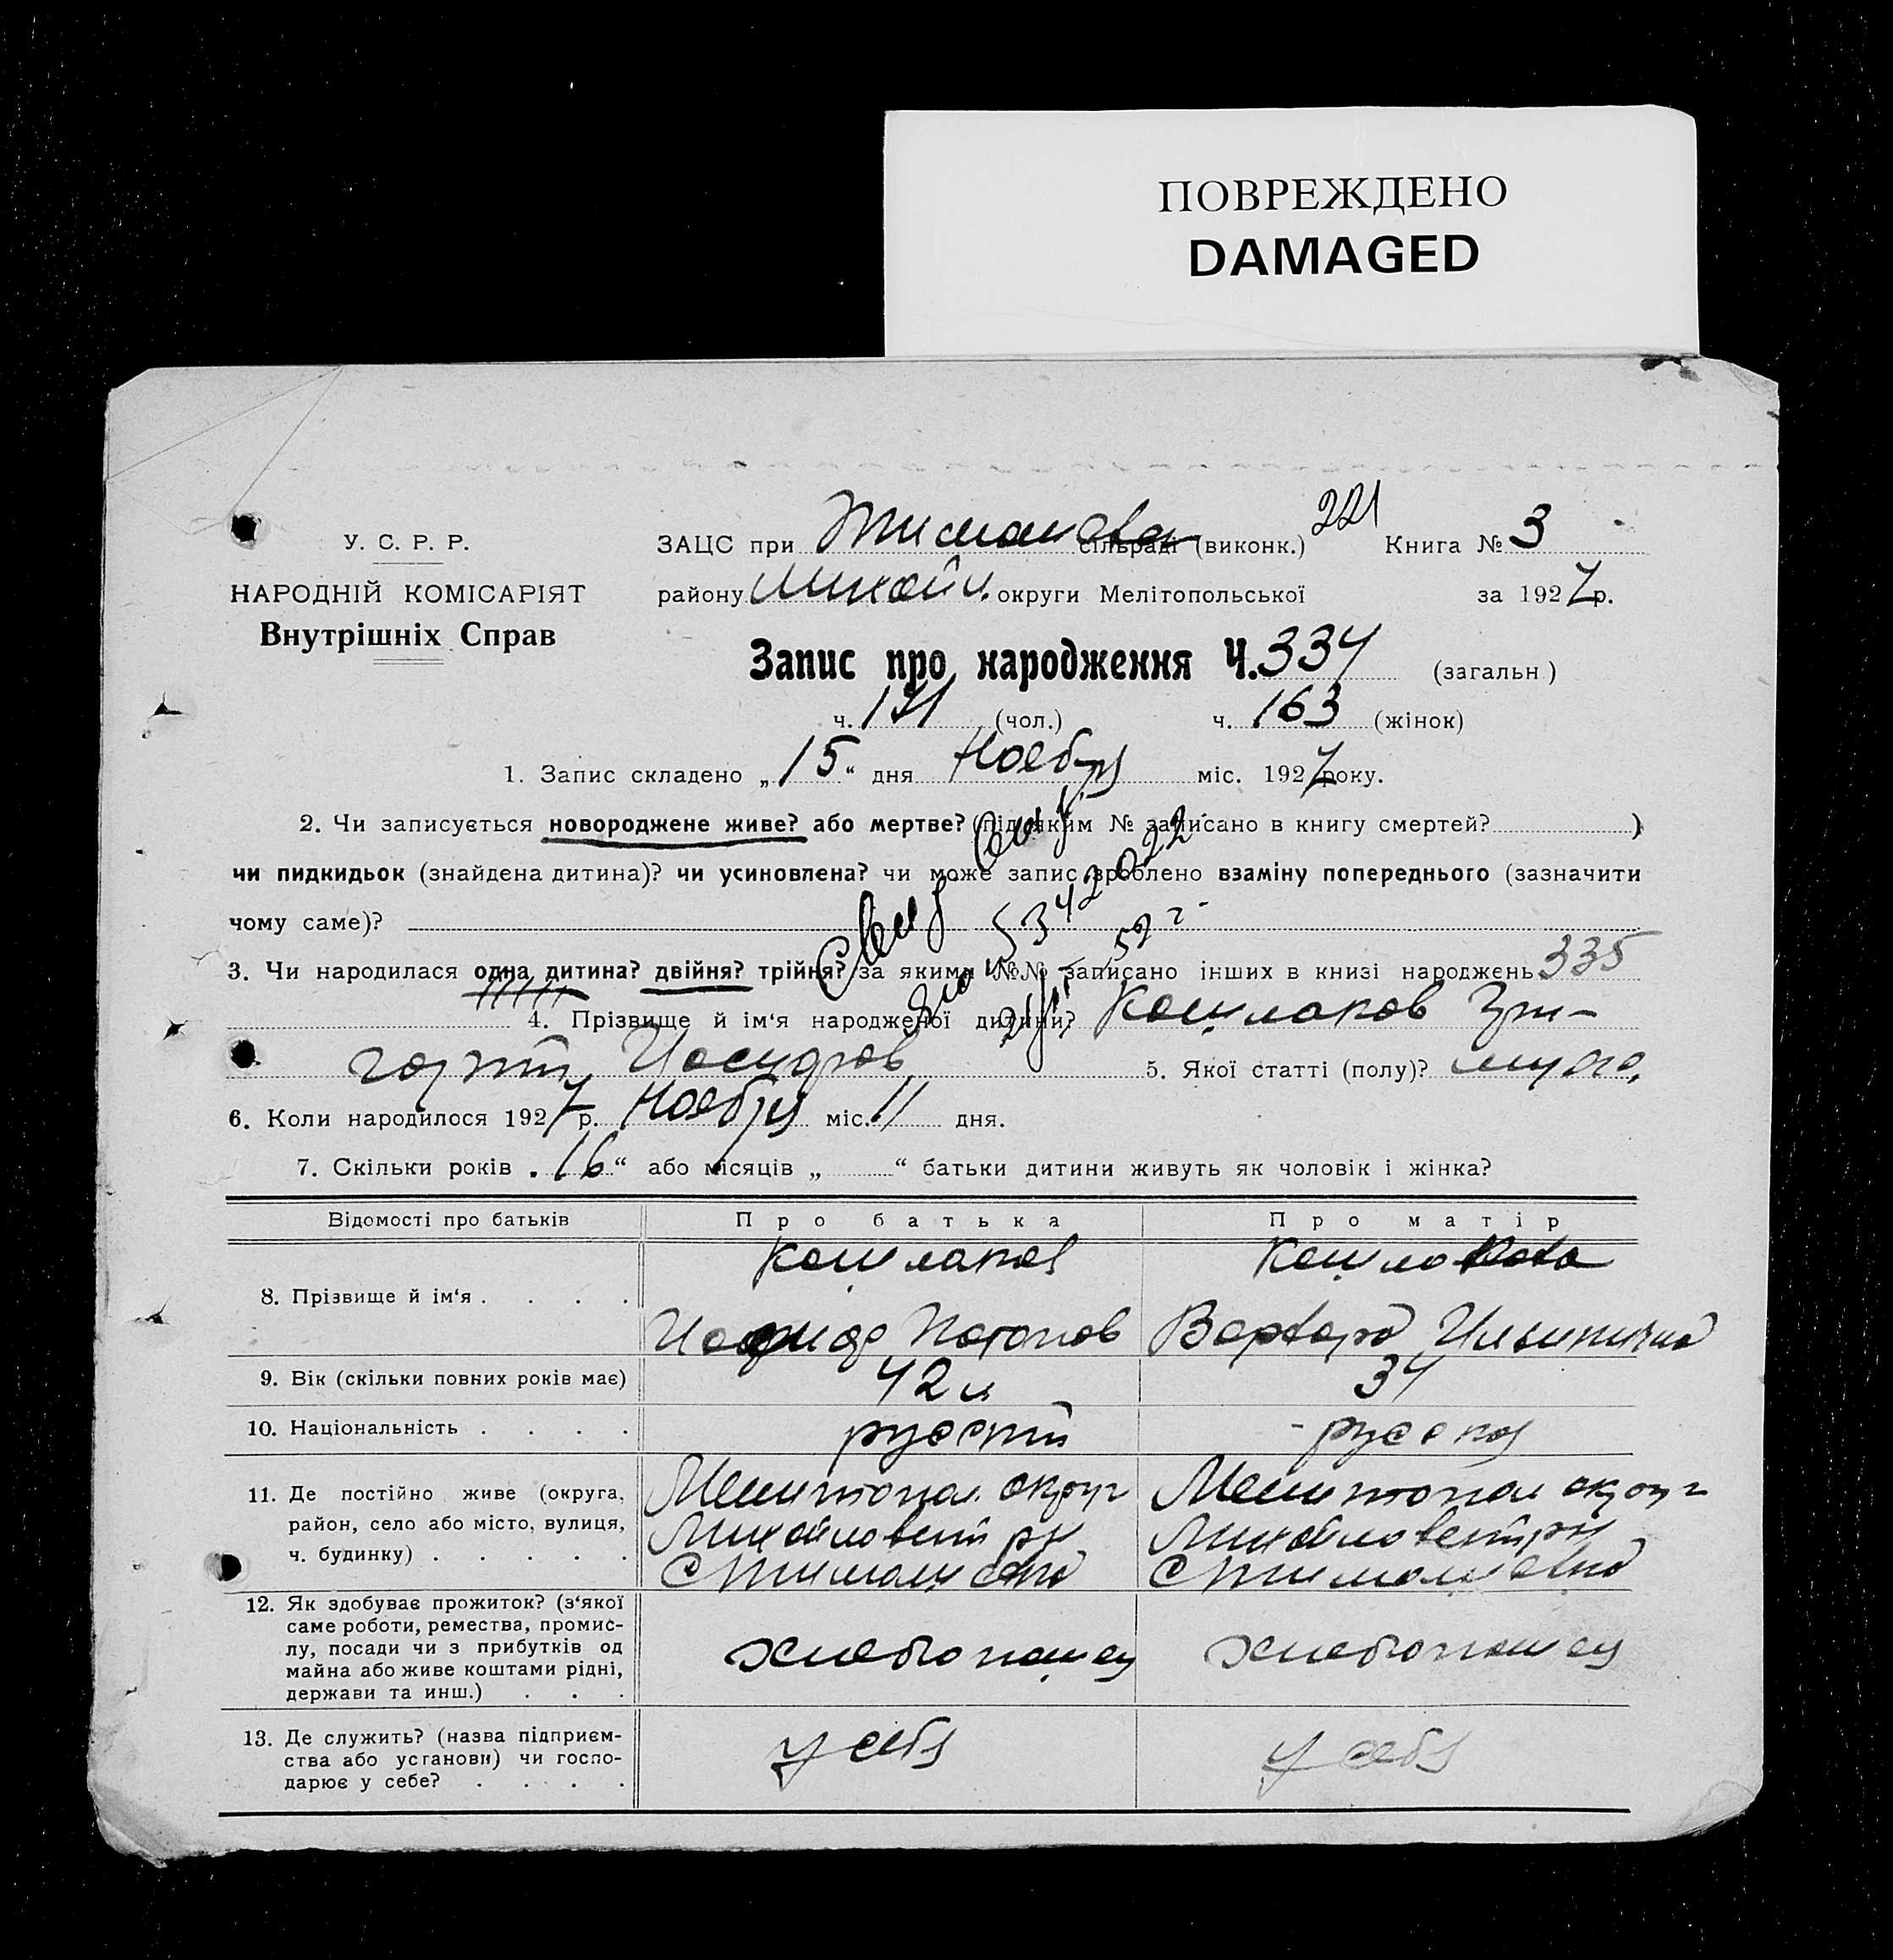 ПОВРЕЖДЕНО
DAMAGED
У. С. Р. Р.
НАРОДНІЙ КОМІСАРІЯТ
Внутрішніх Справ
ЗАЦС при Тимашовка сільраді (виконк.) 221 Книга № 3
району Михайл. округи Мелітопольської за 1927 р.
Запис про народження Ч. 334 (загальн.)
ч. 171 (чол.) ч. 163 (жінок)
1. Запис складено „15“ дня Ноября міс. 1927 року.
2. Чи записується новороджене живе? або мертве? (під яким № записано в книгу смертей? )
чи пидкидьок (знайдена дитина)? чи усиновлена? чи може запис зроблено взаміну попереднього (зазначити
чому саме)?
3. Чи народилася одна дитина? двійня? трійня? за якими №№ записано інших в книзі народжень 335
4. Прізвище й ім‘я народженої дитини? Кошлаков Гри-
горий
5. Якої статті (полу)? мужс.
6. Коли народилося 1927 р. Ноября міс. 11 дня.
7. Скільки років „16“ або місяців „ “ батьки дитини живуть як чоловік і жінка?
Відомості про батьків Про батька Про матір
8. Прізвище й ім‘я . . . . Кошлаков Кошлакова
Потапов Варвара Ильинична
9. Вік (скільки повних років має) 42 л 34
10. Національність . . . . русский русская
11. Де постійно живе (округа, район, село або місто, вулиця, ч. будинку) . . . . .
Мелитопол. округ Мелитопол округ
Михайловский рн Михайловский рн
С Тимашовка С Тимашовка
12. Як здобуває прожиток? (з‘якої
саме роботи, ремества, промис-
лу, посади чи з прибутків од
майна або живе коштами рідні,
держави та инш.) . . .
хлебопашец хлебопашец
13. Де служить? (назва підприєм-
ства або установи) чи госпо-
дарює у себе? . . . .
у себя у себя